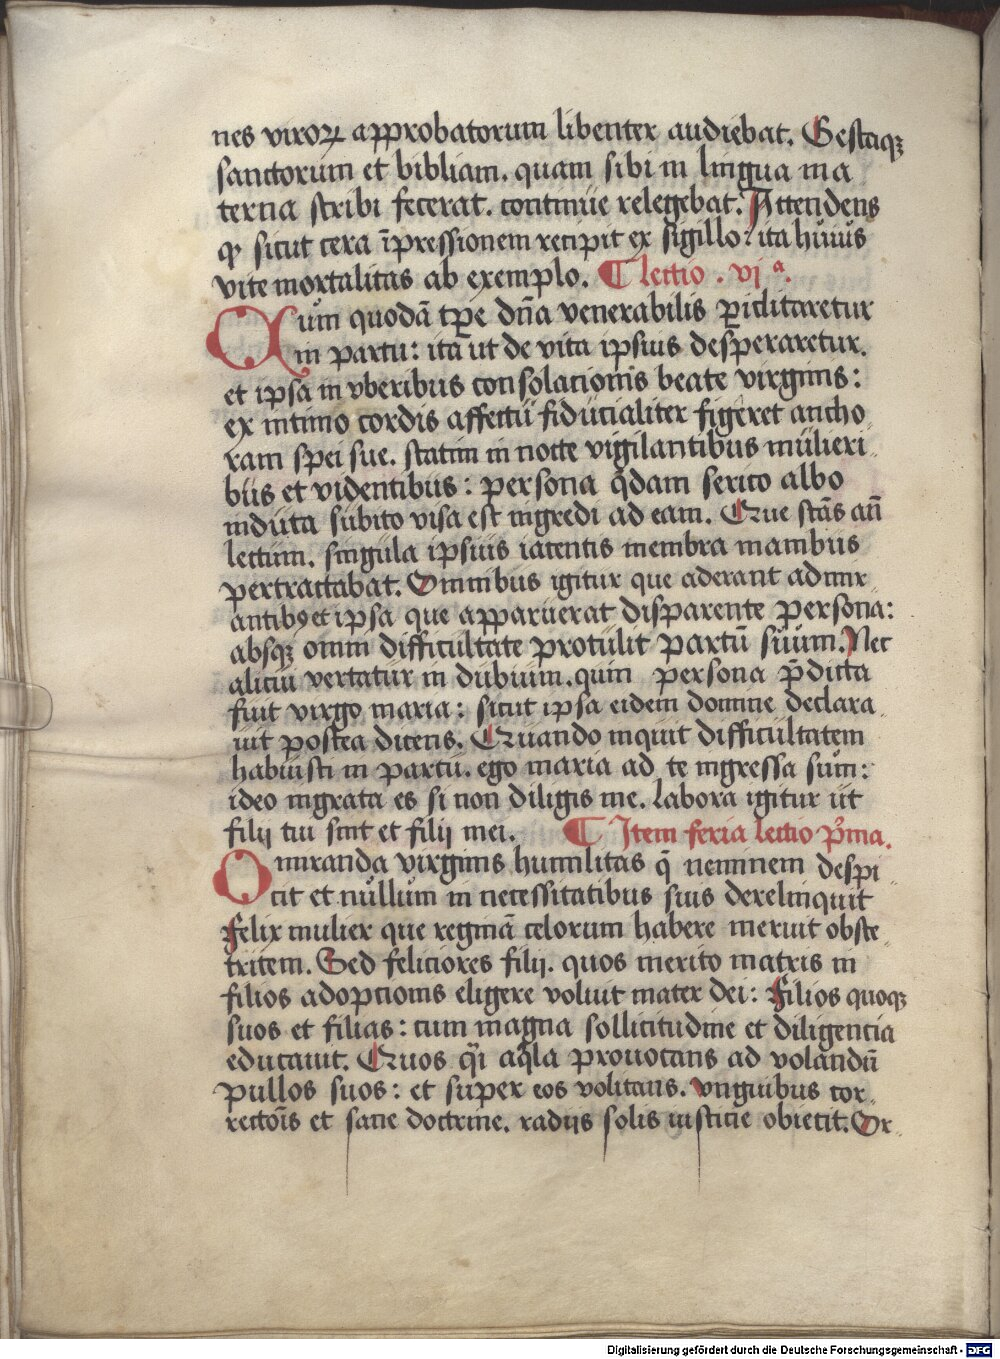 nes viroꝝ approbatorum libenter audiebat. Gestaqꝫ
sanctorum et bibliam. quam sibi in lingua ma
terna scribi fecerat. continue relegebat. Attendens
ꝙ sicut cera īpressionem recipit ex sigillo: ita huius
vite mortalitas ab exemplo. ¶ lectio . vjᵃ.
Cum quodā tp̄e dn̄a venerabilis ꝑiclitaretur
in partu: ita ut de vita ipsius desperaretur.
et ipsa in vberibus consolacionis beate virginis:
ex intimo cordis affectu fiducialiter figeret ancho
ram spei sue. statim in nocte vigilantibus mulieri
bus et videntibus: persona q̄dam serico albo
induta subito visa est ingredi ad eam. Que stās an̄
lectum. singula ipsius iacentis membra manibus
pertractabat. Omnibus igitur que aderant admir
antibꝰ et ipsa que apparuerat disparente persona:
absqꝫ omni difficultate protulit partū suum. Nec
alicui vertatur in dubium. quin persona p̄dicta
fuit virgo maria: sicut ipsa eidem domine declara
uit postea dicens. Quando inquit difficultatem
habuisti in partu. ego maria ad te ingressa sum:
ideo ingrata es si non diligis me. labora igitur ut
filij tui sint et filij mei. ¶ Item feria lectio p̄ma.
O miranda virginis humilitas q̄ neminem despi
cit et nullum in necessitatibus suis derelinquit
Felix mulier que reginā celorum habere meruit obste
tricem. Sed feliciores filij. quos merito matris in
filios adopcionis eligere voluit mater dei: Filios quoqꝫ
suos et filias: cum magna sollicitudine et diligencia
educauit. Quos q̄i aq̄la prouocans ad volandū
pullos suos: et super eos volitans. vnguibus cor
rectōis et sane doctrine. radijs solis iusticie obiecit. Or
Digitalisierung gefördert durch die Deutsche Forschungsgemeinschaft - DFG